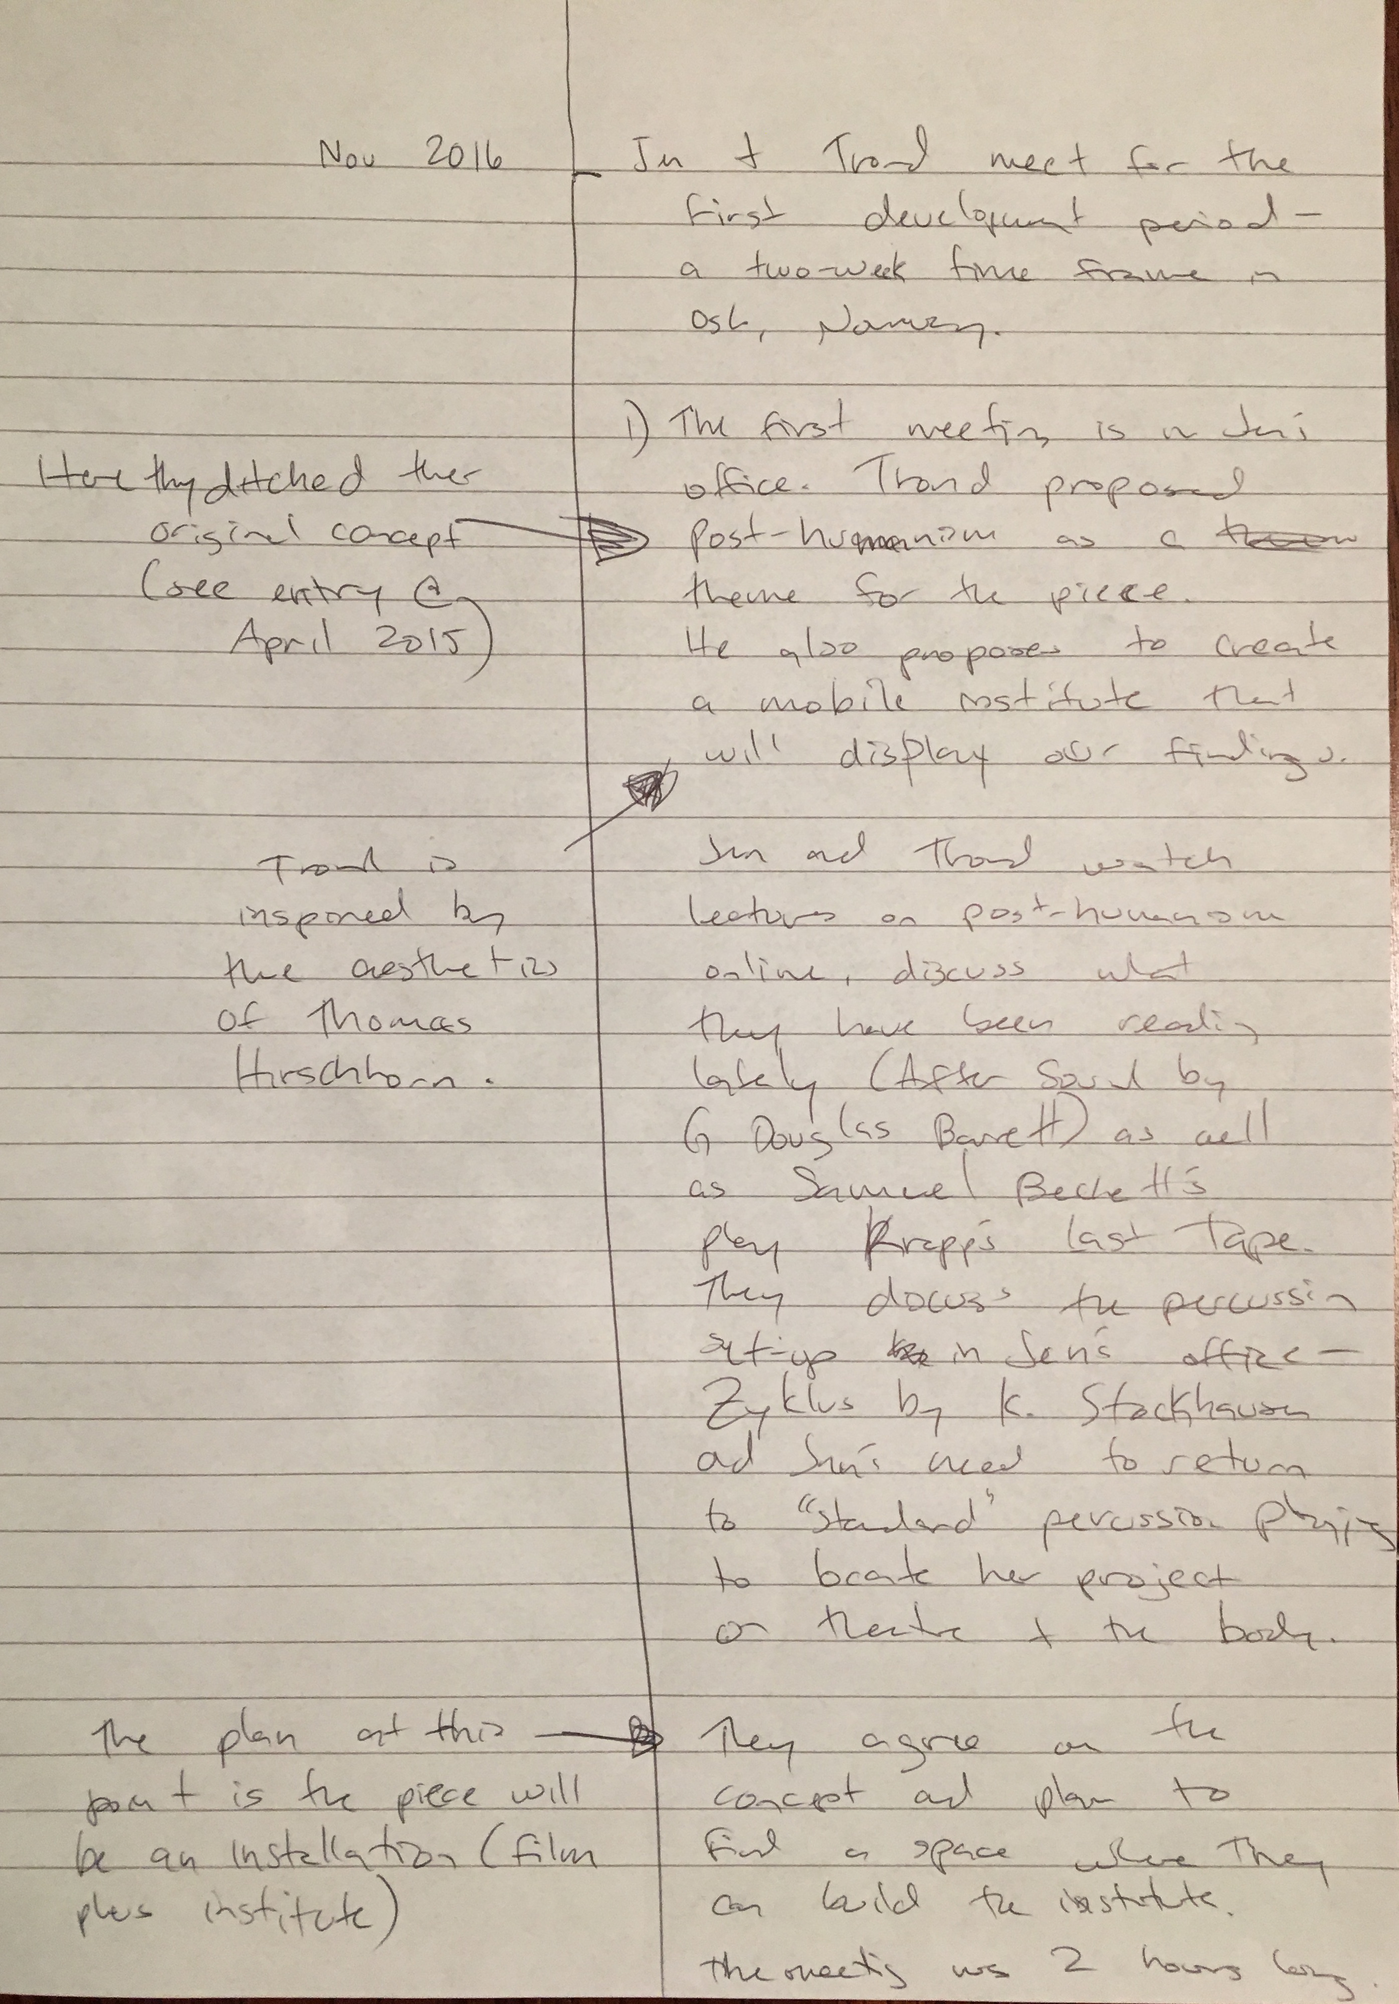 Nov 2016
Jen + Trond meet for the
first development period –
a two-week time frame in
Oslo, Norway.
1) The first meeting is in Jen's
office. Trond proposed
post-humanism as a
theme for the piece.
He also proposes to create
a mobile institute that
will display our findings.
Jen and Trond watch
lectures on post-humanism
online, discuss what
they have been reading
lately (After Sound by
G Douglas Barrett) as well
as Samuel Beckett's
play Krapp's last Tape.
They discuss the percussion
set-up in Jen's office –
Zyklus by K. Stockhausen
and Jen's need to return
to "standard" percussion playing
to locate her project
on theatre + the body.
They agree on the
concept and plan to
find a space where They
can build the institute.
The meeting was 2 hours long.
Here they ditched their
original concept
(see entry @
April 2015)
Trond is
inspired by
the aesthetics
of Thomas
Hirschhorn.
The plan at this
point is the piece will
be an installation (film
plus institute)